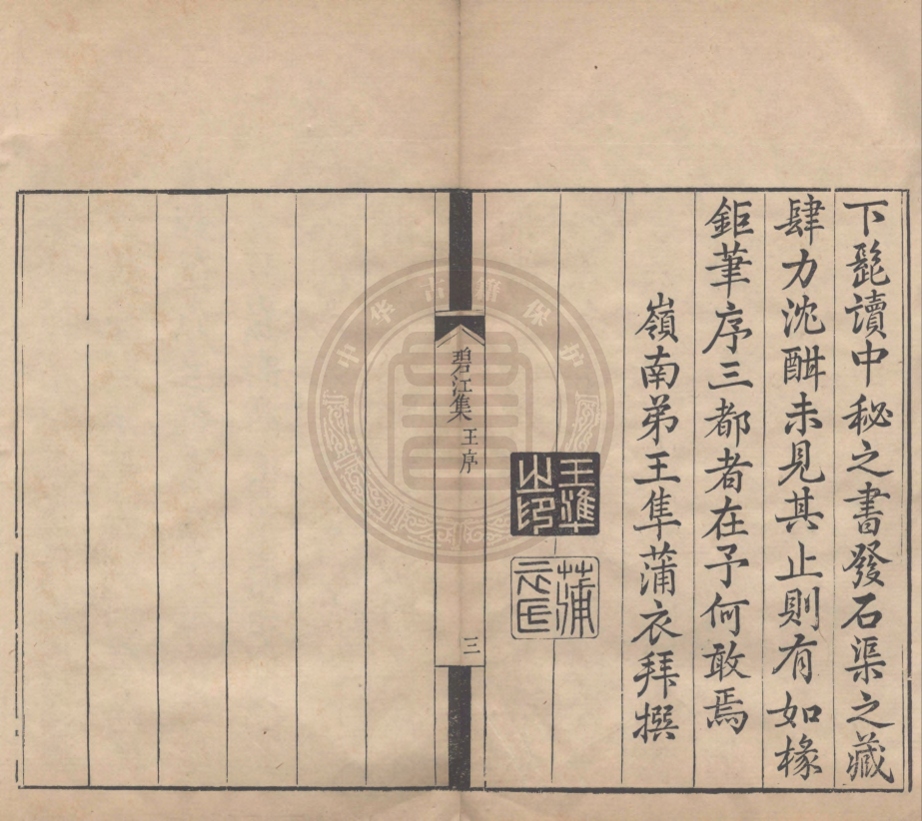 下髭讀中秘之書發石渠之藏
肆力沈酣未見其止則有如椽
鉅筆序三都者在予何敢焉
嶺南弟王隼蒲衣拜撰
王隼之印
蒲衣氏
碧江集 王序 三
中华古籍保护